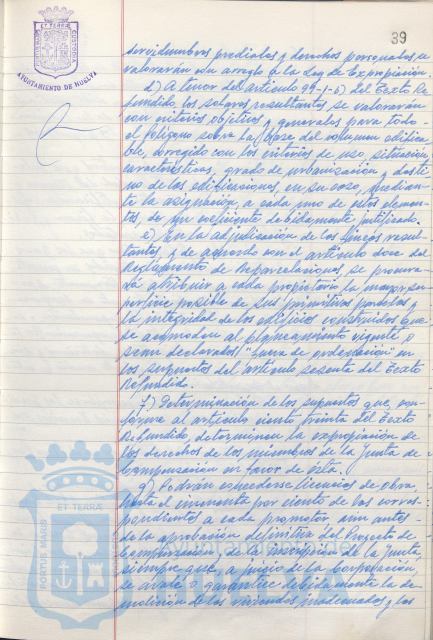 39
PORTUS MARIS ET TERRÆ CUSTODIA
AYUNTAMIENTO DE HUELVA
servidumbres prediales y derechos personales, se
valorarán con arreglo a la Ley de Expropiación.
d) A tenor del artículo 99-1-b) del Texto Re-
fundido, los solares resultantes se valorarán
con criterios objetivos y generales para todo
el polígono sobre la base del volumen edifica-
ble, corregido con los criterios de uso, situación,
características, grado de urbanización y desti-
no de las edificaciones, en su caso, median-
te la asignación, a cada uno de estos elemen-
tos, de un coeficiente debidamente justificado.
e) En la adjudicación de las fincas resul-
tantes, y de acuerdo con el artículo doce del
Reglamento de Reparcelaciones, se procura-
rá atribuir a cada propietario la mayor su-
perficie posible de sus primitivas parcelas y
la integridad de los edificios construidos que
se acomoden al planeamiento vigente o
sean declarados "fuera de ordenación" en
los supuestos del artículo sesenta del Texto
Refundido.
f) Determinación de los supuestos que, con-
forme al artículo ciento treinta del Texto
Refundido, determinen la expropiación de
los derechos de los miembros de la Junta de
Compensación en favor de ésta.
g) Podrán concederse licencias de obra
hasta el cincuenta por ciento de las corres-
pondientes a cada promotor, aún antes
de la aprobación definitiva del Proyecto de
Compensación, de la inscripción de la Junta,
siempre que, a juicio de la Corporación,
se avale o garantice debidamente la de-
molición de las viviendas inadecuadas y las
PORTUS MARIS ET TERRÆ